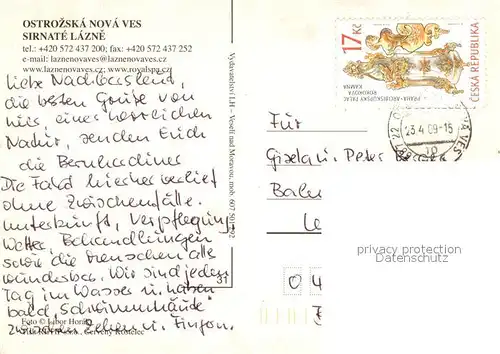 OSTROŽSKÁ NOVÁ VES
SIRNATÉ LÁZNĚ
tel.: +420 572 437 200; fax: +420 572 437 252
e-mail: laznenovaves@laznenovaves.cz
www.laznenovaves.cz; www.royalspa.cz
Liebe
die besten Grüße von
hier einer herrlichen
Natur, senden Euch
die Bernhardiner
Die Fahrt hierher verlief
ohne Zwischenfälle.
Unterkunft, Verpflegung
Wetter, Behandlungen
sowie die Menschen alle
wunderbar. Wir sind jeden
Tag im Wasser u. haben
bald „Schwimmhäute"
zwischen Zehen u. Fingern.
Foto © Libor
Červený Kostelec
Vydavatelství LH – Veselí nad Moravou, mob. 607
31
17Kč
ČESKÁ REPUBLIKA
PRAHA - ARCIBISKUPSKÝ PALÁC
ROKOKOVÁ
KAMNA
23.4.09-15
687 22
NÁ VES
Für
Gisela u. Peter
privacy protection
Datenschutz
0 4